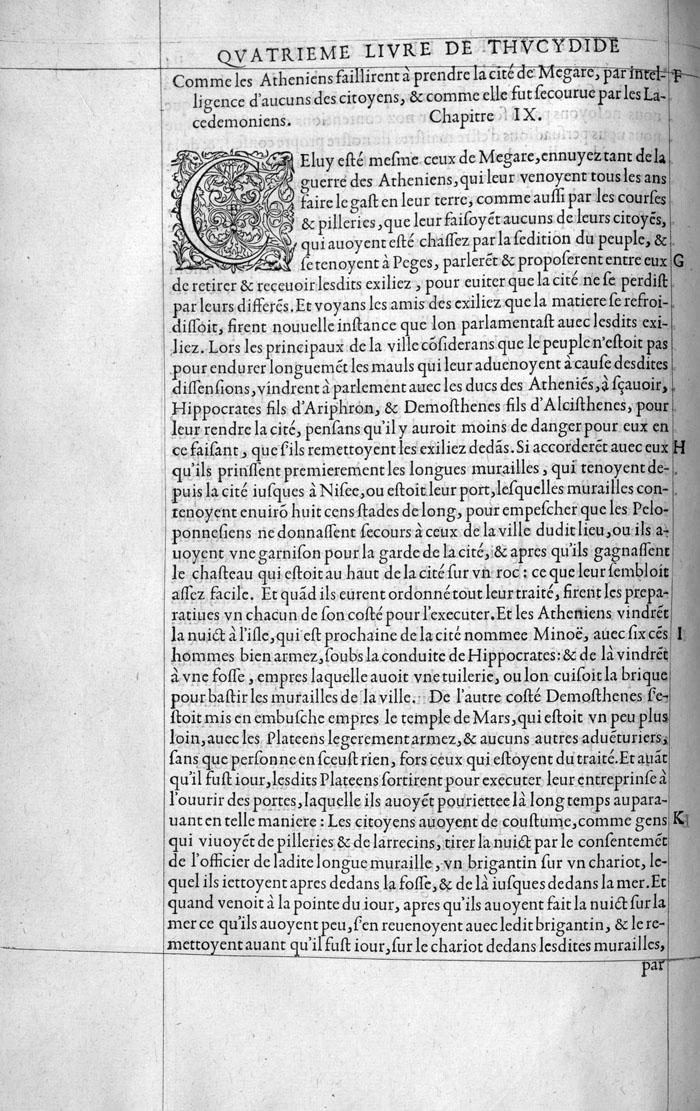 QVATRIEME LIVRE DE THVCYDIDE
Comme les Atheniens faillirent à prendre la cité de Megare, par intel- F
ligence d'aucuns des citoyens, & comme elle fut ſecourue par les La-
cedemoniens. Chapitre IX.
CEluy eſté meſme ceux de Megare, ennuyez tant de la
guerre des Atheniens, qui leur venoyent tous les ans
faire le gaſt en leur terre, comme auſſi par les courſes
& pilleries, que leur faiſoyẽt aucuns de leurs citoyẽs,
qui auoyent eſté chaſſez par la ſedition du peuple, &
ſe tenoyent à Peges, parlerẽt & propoſerent entre eux G
de retirer & receuoir leſdits exiliez, pour euiter que la cité ne ſe perdiſt
par leurs differẽs. Et voyans les amis des exiliez que la matiere ſe refroi-
diſſoit, firent nouuelle inſtance que lon parlamentaſt auec leſdits exi-
liez. Lors les principaux de la ville cõſiderans que le peuple n'eſtoit pas
pour endurer longuemẽt les mauls qui leur aduenoyent à cauſe deſdites
diſſenſions, vindrent à parlement auec les ducs des Atheniẽs, à ſçauoir,
Hippocrates fils d'Ariphron, & Demoſthenes fils d'Alciſthenes, pour
leur rendre la cité, penſans qu'il y auroit moins de danger pour eux en
ce faiſant, que ſ'ils remettoyent les exiliez dedãs. Si accorderẽt auec eux H
qu'ils prinſſent premierement les longues murailles, qui tenoyent de-
puis la cité iuſques à Niſee, ou eſtoit leur port, leſquelles murailles con-
tenoyent enuirõ huit cens ſtades de long, pour empeſcher que les Pelo-
ponneſiens ne donnaſſent ſecours à ceux de la ville dudit lieu, ou ils a-
uoyent vne garniſon pour la garde de la cité, & apres qu'ils gagnaſſent
le chaſteau qui eſtoit au haut de la cité ſur vn roc: ce que leur ſembloit
aſſez facile. Et quãd ils eurent ordonné tout leur traité, firent les prepa-
ratiues vn chacun de ſon coſté pour l'executer. Et les Atheniens vindrẽt
la nuict à l'iſle, qui eſt prochaine de la cité nommee Minoë, auec ſix cẽs I
hommes bien armez, ſoubs la conduite de Hippocrates: & de là vindrẽt
à vne foſſe, empres laquelle auoit vne tuilerie, ou lon cuiſoit la brique
pour baſtir les murailles de la ville. De l'autre coſté Demoſthenes ſ'e-
ſtoit mis en embuſche empres le temple de Mars, qui eſtoit vn peu plus
loin, auec les Plateens legerement armez, & aucuns autres aduẽturiers,
ſans que perſonne en ſceuſt rien, fors ceux qui eſtoyent du traité. Et auãt
qu'il fuſt iour, leſdits Plateens ſortirent pour executer leur entreprinſe à
l'ouurir des portes, laquelle ils auoyẽt pouriettee là long temps aupara-
uant en telle maniere: Les citoyens auoyent de couſtume, comme gens K
qui viuoyẽt de pilleries & de larrecins, tirer la nuict par le conſentemẽt
de l'officier de ladite longue muraille, vn brigantin ſur vn chariot, le-
quel ils iettoyent apres dedans la foſſe, & de là iuſques dedans la mer. Et
quand venoit à la pointe du iour, apres qu'ils auoyent fait la nuict ſur la
mer ce qu'ils auoyent peu, ſ'en reuenoyent auec ledit brigantin, & le re-
mettoyent auant qu'il fuſt iour, ſur le chariot dedans leſdites murailles,
par